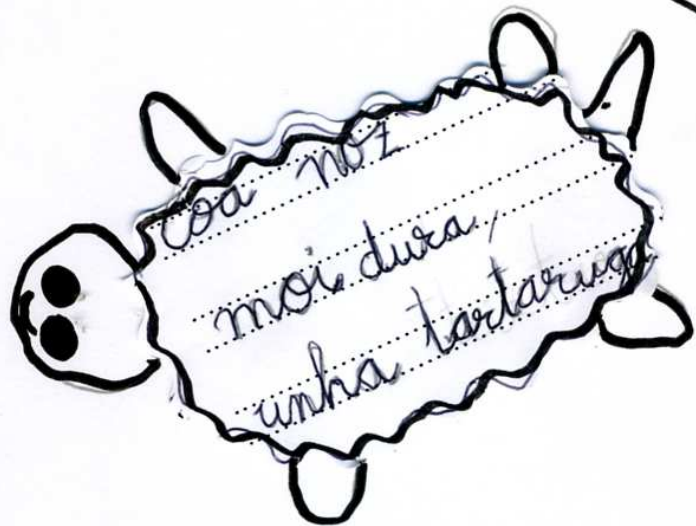 coa noz
moi dura,
unha tartaruga